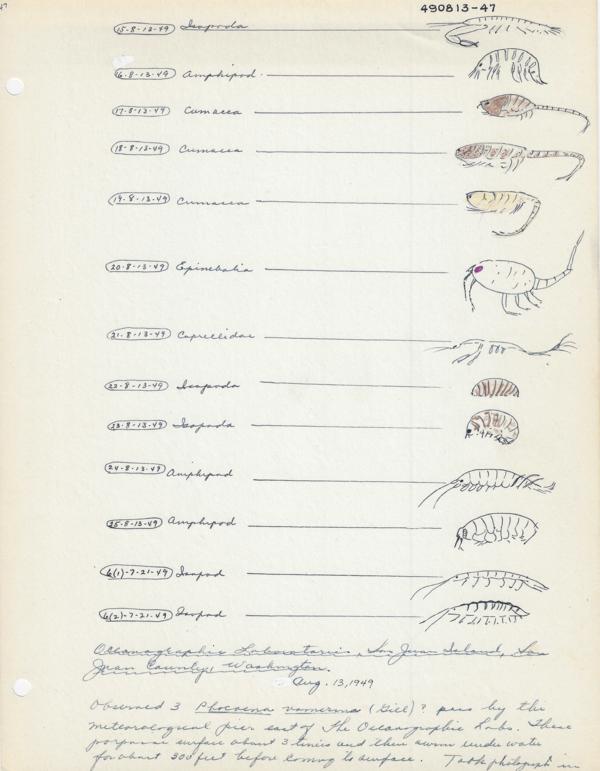 47
490813-47
15-8-13-49 Isopoda
16-8-13-49 Amphipod.
17-8-13-49 Cumacea
18-8-13-49 Cumacea
19-8-13-49 Cumacea
20-8-13-49 Epinebalia
21-8-13-49 Caprellidae
22-8-13-49 Isopoda
23-8-13-49 Isopoda
24-8-13-49 Amphipod
25-8-13-49 Amphipod
6(1)-7-21-49 Isopod
6(2)-7-21-49 Isopod
Oceanographic Laboratories, San Juan Island, San
Juan County, Washington.
Aug. 13, 1949
Observed 3 Phocaena vomerina (Gill)? pass by the
meteorological pier east of the Oceanographic Labs. These
porpoises surface about 3 times and then swim under water
for about 300 feet before coming to surface. Took photograph in